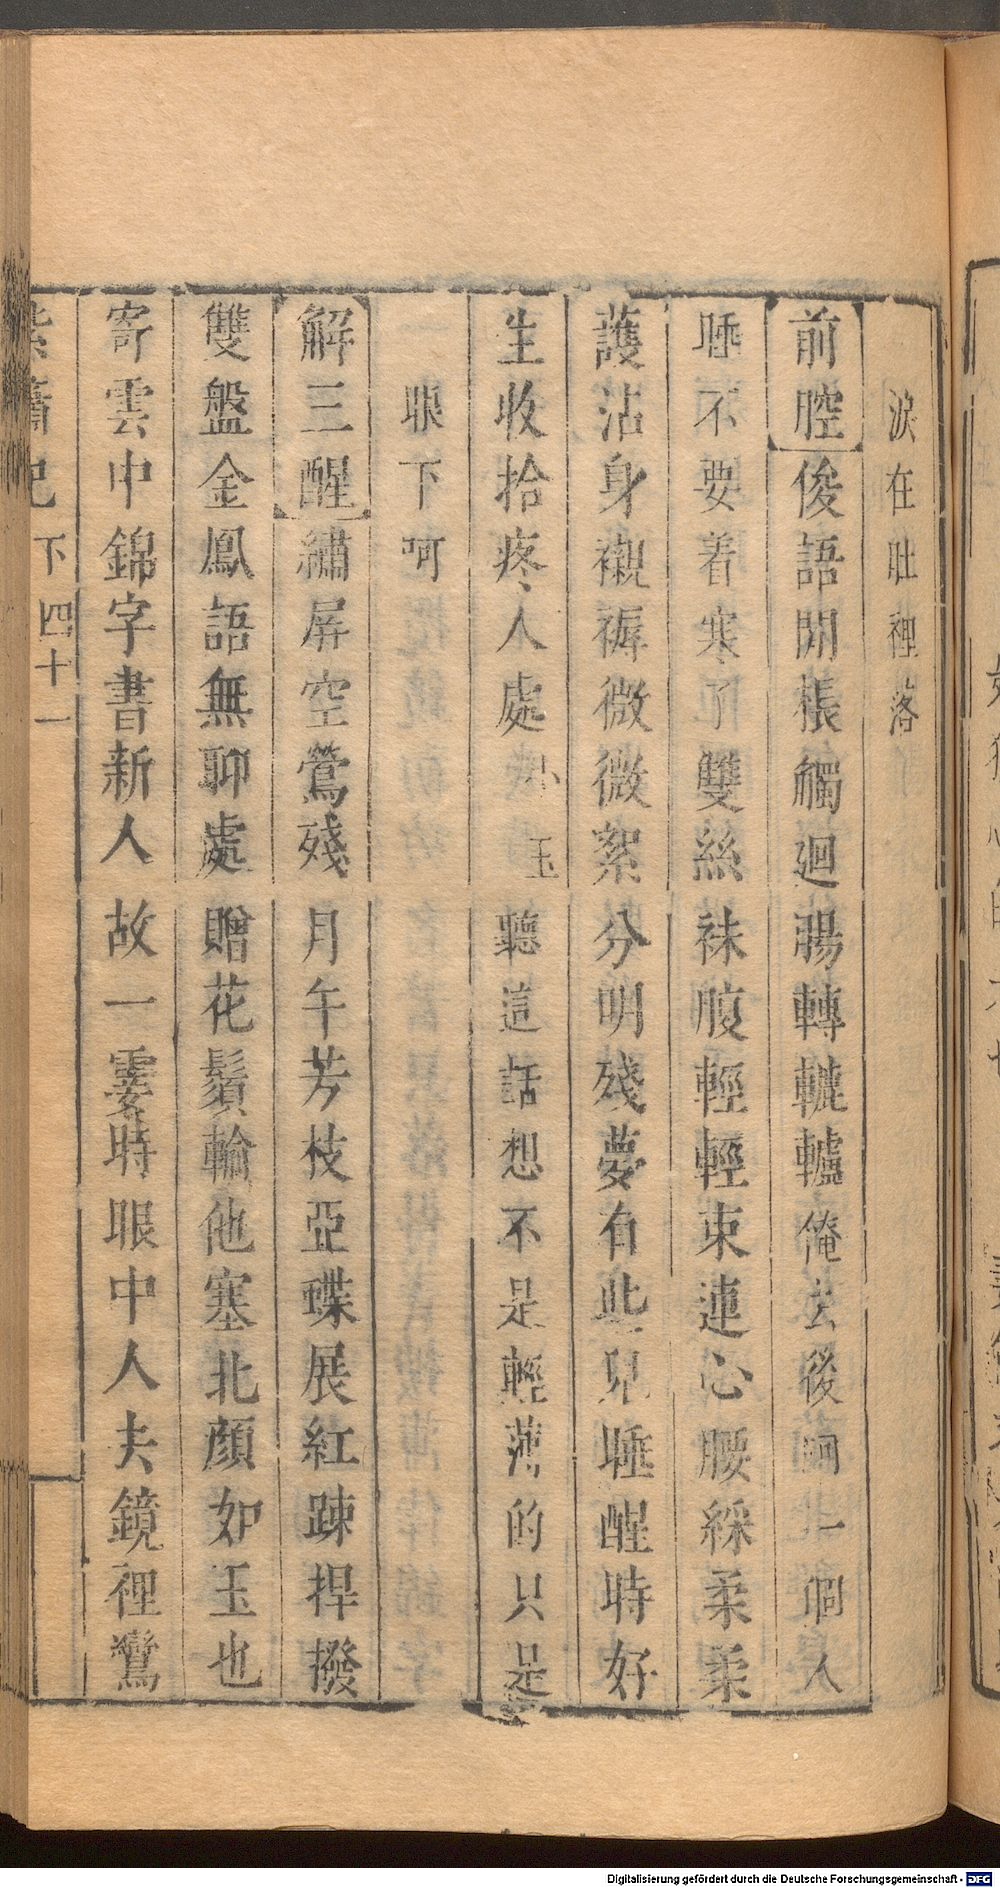 淚在肚裡落
前腔俊語閒棖觸迴腸轉轆轤俺去後呵一個人
睡不要着寒了雙絲袜腹輕輕束連心腰綵柔柔
護沾身襯褥微微絮分明殘夢有些兒睡醒時好
生收拾疼人處小玉聽這話想不是輕薄的只是
眼下呵
解三酲繡屏空鶯殘月午芳枝亞蝶展紅踈捍撥
雙盤金鳳語無聊處贈花鬚輸他塞北顏如玉也
寄雲中錦字書新人故一霎時眼中人去鏡裡鸞
紫簫記 下 四十一
Digitalisierung gefördert durch die Deutsche Forschungsgemeinschaft - DFG